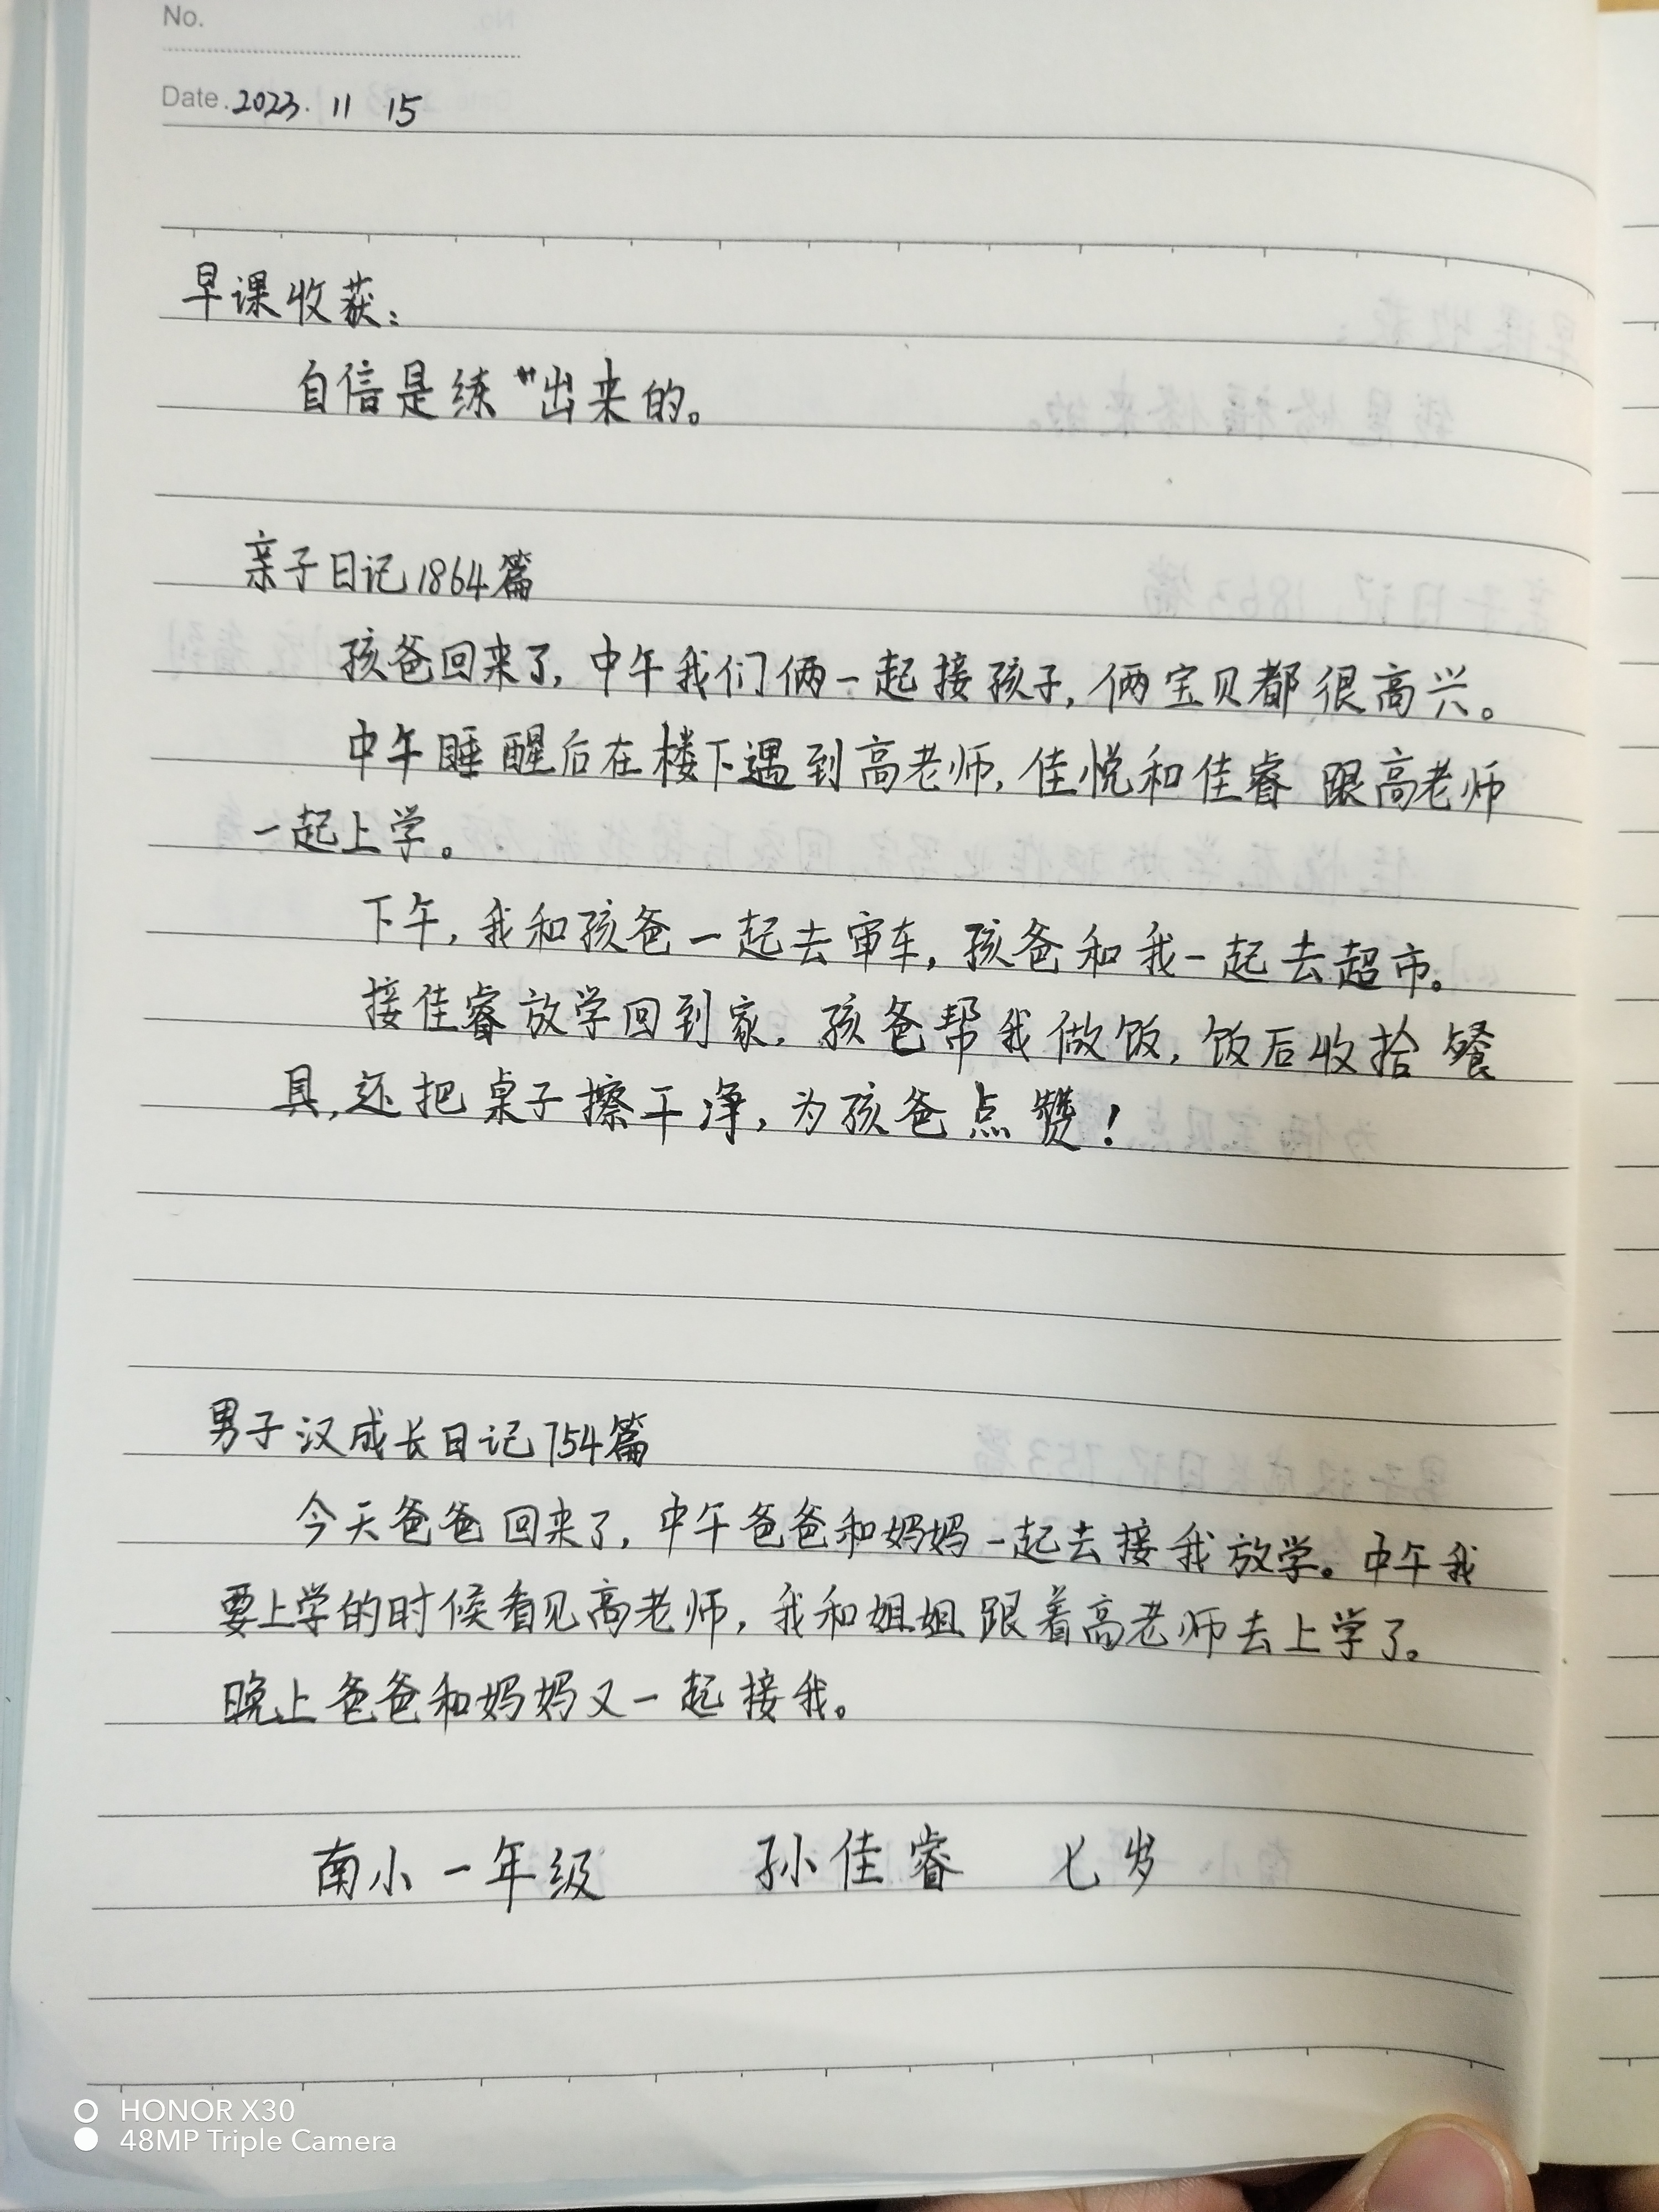 No.
Date. 2023. 11 15
早课收获：
自信是练“”出来的。
亲子日记1864篇
孩爸回来了，中午我们俩一起接孩子，俩宝贝都很高兴。
中午睡醒后在楼下遇到高老师，佳悦和佳睿跟高老师
一起上学。
下午，我和孩爸一起去审车，孩爸和我一起去超市。
接佳睿放学回到家，孩爸帮我做饭，饭后收拾餐
具，还把桌子擦干净，为孩爸点赞！
男子汉成长日记754篇
今天爸爸回来了，中午爸爸和妈妈一起去接我放学。中午我
要上学的时候看见高老师，我和姐姐跟着高老师去上学了。
晚上爸爸和妈妈又一起接我。
南小一年级 孙佳睿 七岁
HONOR X30
48MP Triple Camera